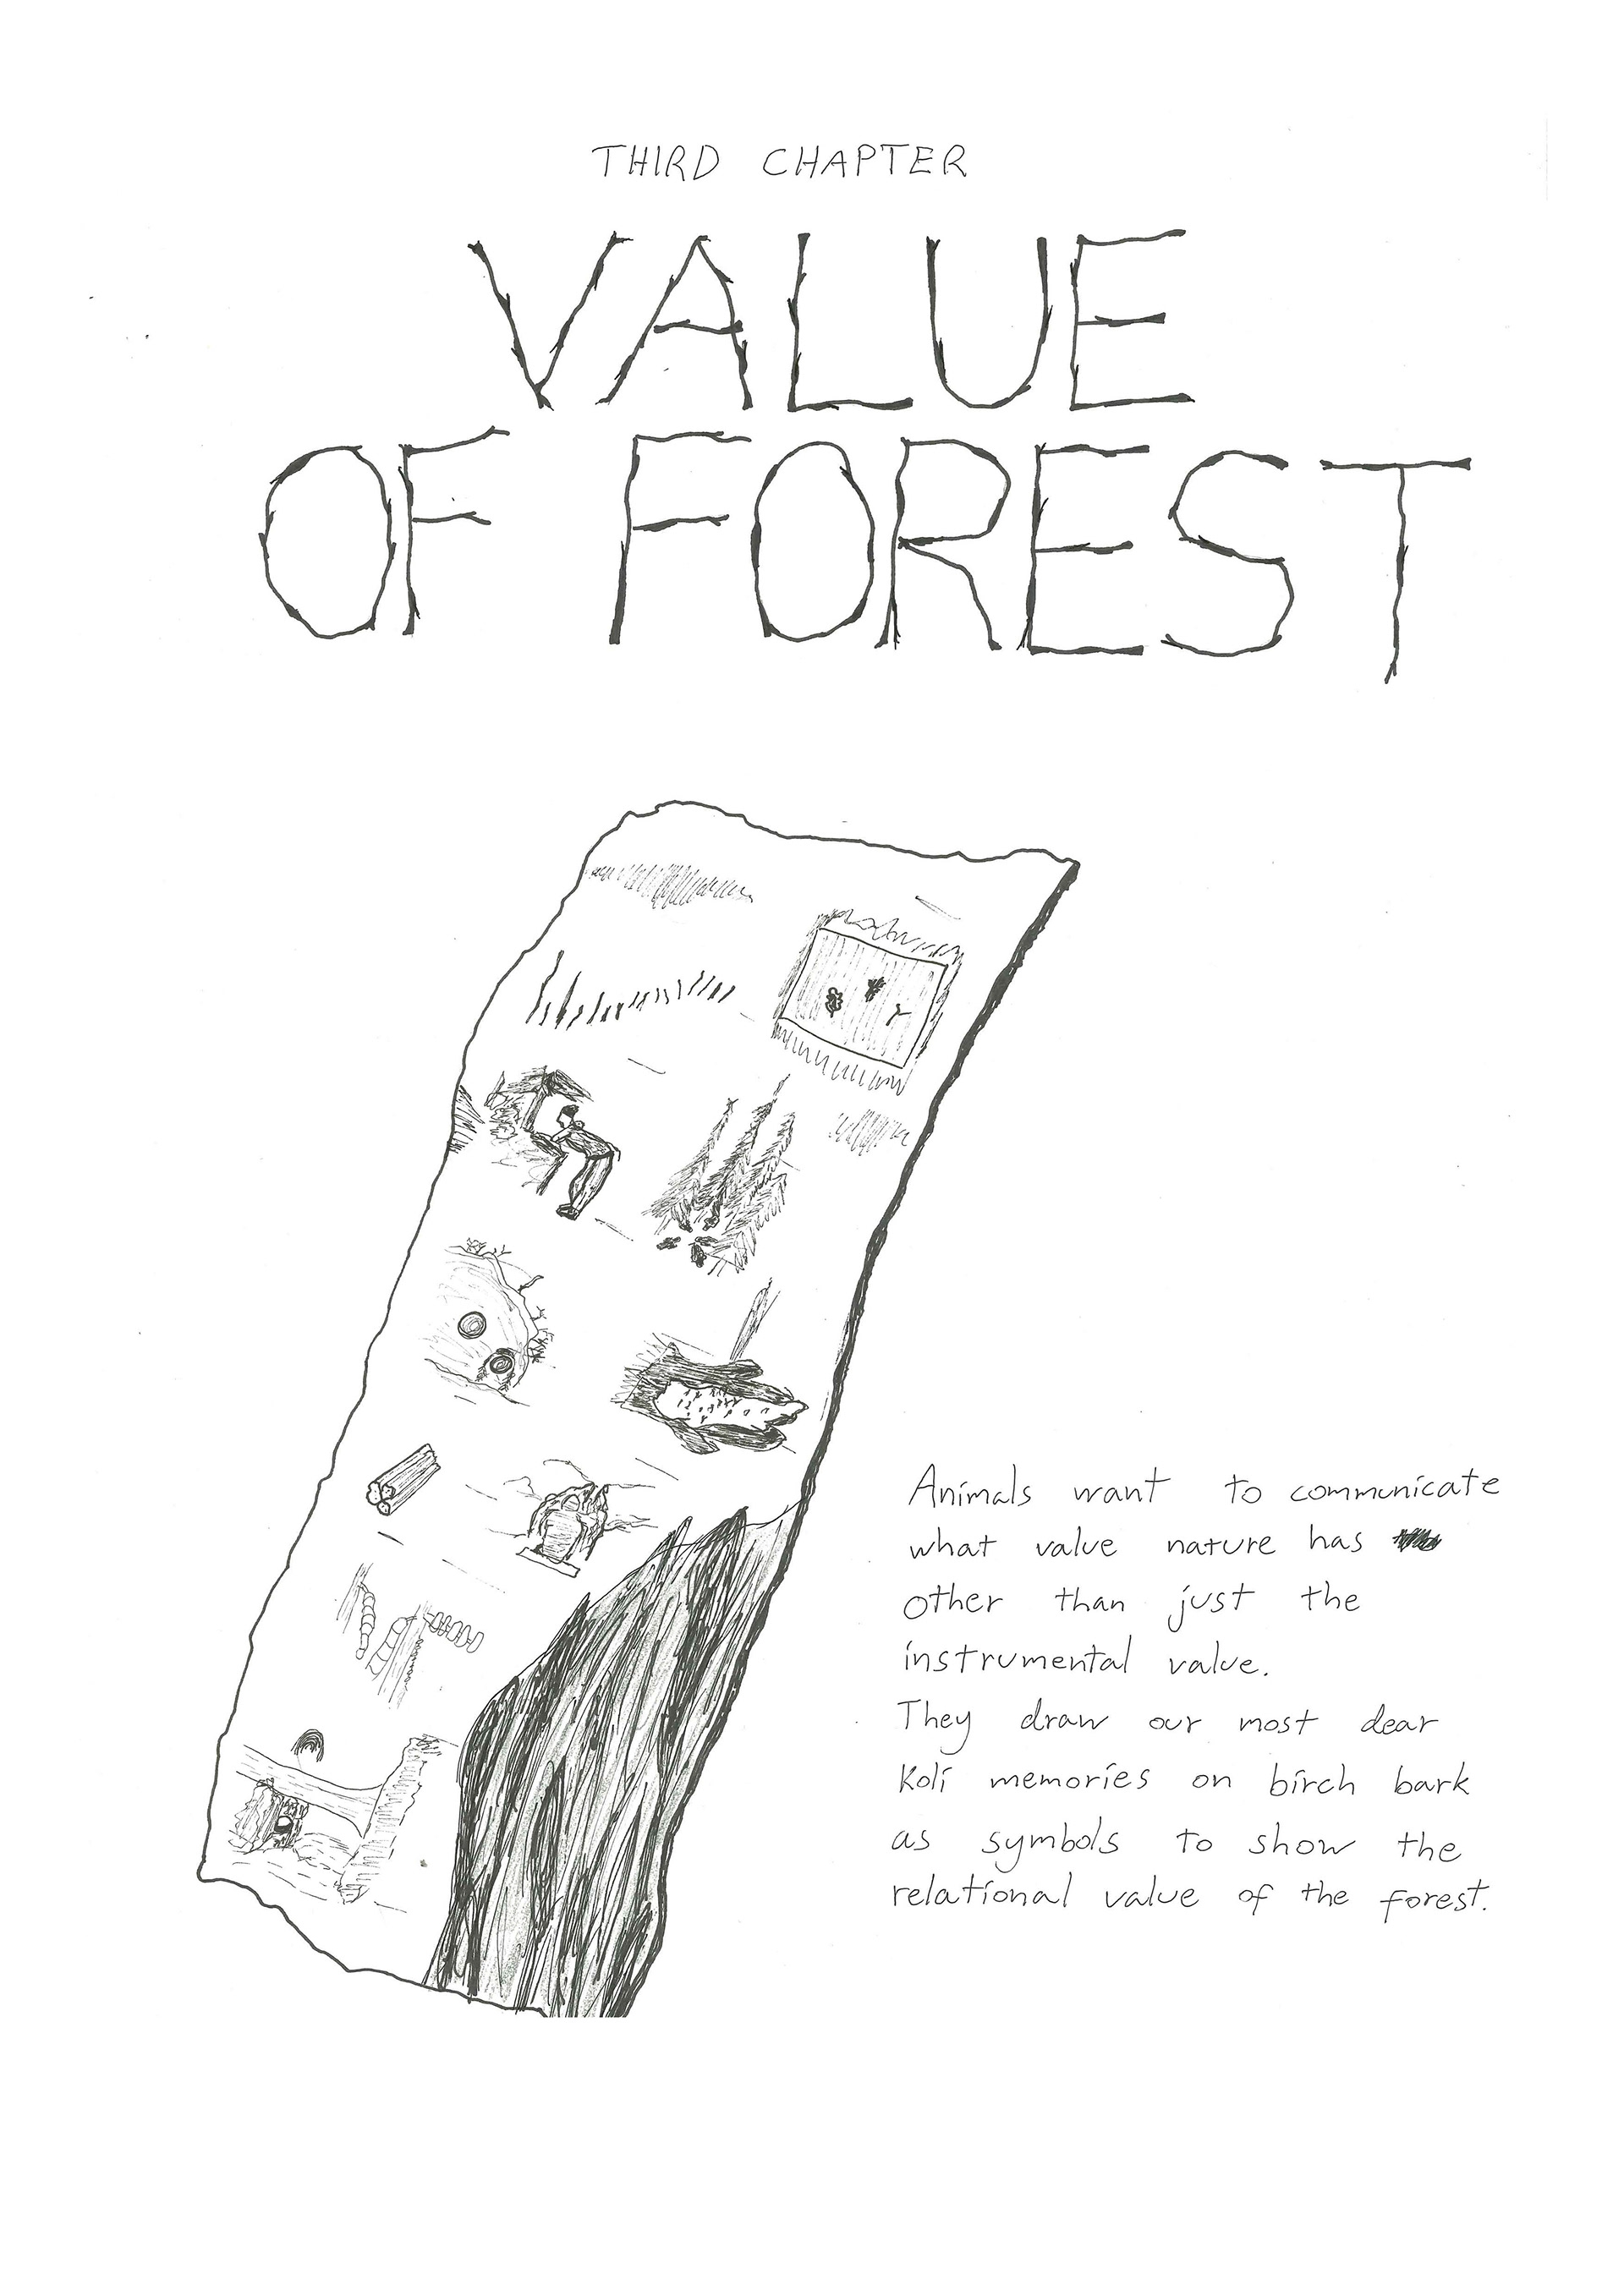 THIRD CHAPTER
VALUE
OF FOREST
Animals want to communicate
what value nature has
other than just the
instrumental value.
They draw our most dear
Koli memories on birch bark
as symbols to show the
relational value of the forest.